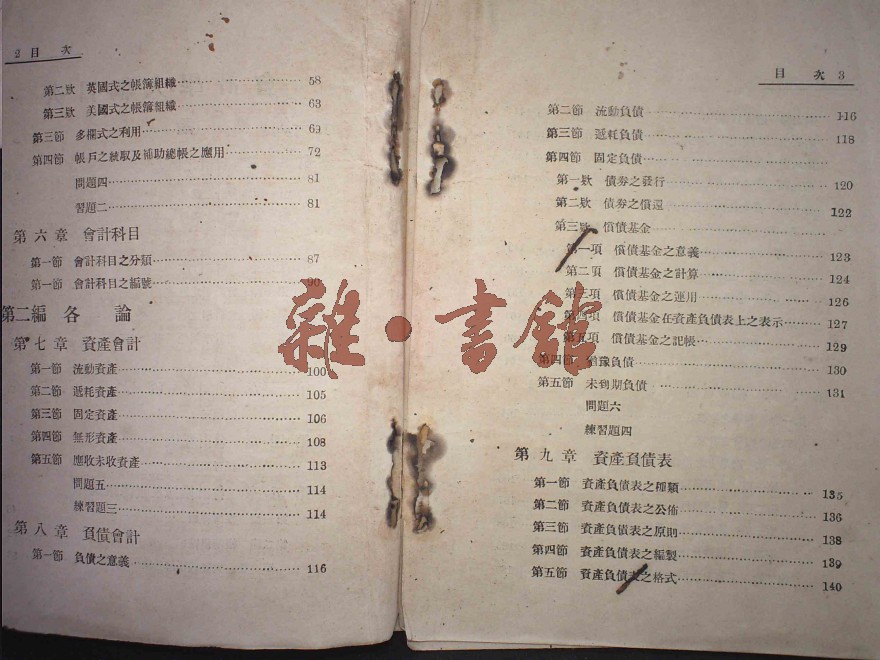 2 目 次
第二欵 英國式之帳簿組織 58
第三欵 美國式之帳簿組織 63
第三節 多欄式之利用 69
第四節 帳戶之統馭及補助總帳之應用 72
問題四 81
習題二 81
第六章 會計科目
第一節 會計科目之分類 87
第一節 會計科目之編號 90
第二編 各論
第七章 資產會計
第一節 流動資產 100
第二節 遞耗資產 105
第三節 固定資產 106
第四節 無形資產 108
第五節 應收未收資產 113
問題五 114
練習題三 114
第八章 負債會計
第一節 負債之意義 116
目 次 3
第二節 流動負債 116
第三節 遞耗負債 118
第四節 固定負債
第一欵 債券之發行 120
第二欵 債券之償還 122
第三欵 償債基金
第一項 償債基金之意義 123
第二項 償債基金之計算 124
第三項 償債基金之運用 126
第四項 償債基金在資產負債表上之表示 127
第五項 償債基金之記帳 129
第四節 猶豫負債 130
第五節 未到期負債 131
問題六
練習題四
第九章 資產負債表
第一節 資產負債表之種類 135
第二節 資產負債表之公佈 136
第三節 資產負債表之原則 138
第四節 資產負債表之編製 139
第五節 資產負債表之格式 140
雜·書館